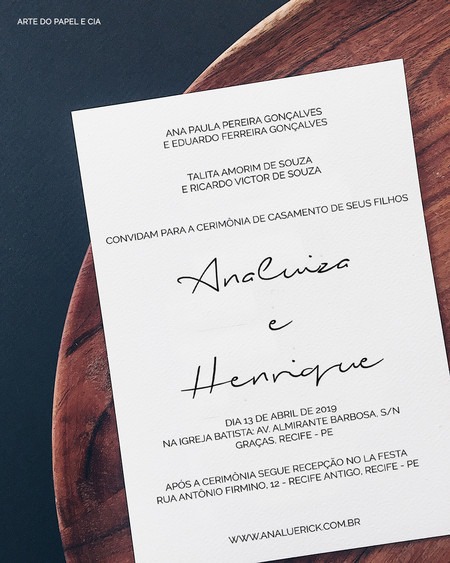 ARTE DO PAPEL E CIA
ANA PAULA PEREIRA GONÇALVES
E EDUARDO FERREIRA GONÇALVES
TALITA AMORIM DE SOUZA
E RICARDO VICTOR DE SOUZA
CONVIDAM PARA A CERIMÔNIA DE CASAMENTO DE SEUS FILHOS
AnaLuiza
e
Henrique
DIA 13 DE ABRIL DE 2019
NA IGREJA BATISTA: AV. ALMIRANTE BARBOSA, S/N
GRAÇAS, RECIFE - PE
APÓS A CERIMÔNIA SEGUE RECEPÇÃO NO LA FESTA
RUA ANTÔNIO FIRMINO, 12 - RECIFE ANTIGO, RECIFE - PE
WWW.ANALUERICK.COM.BR